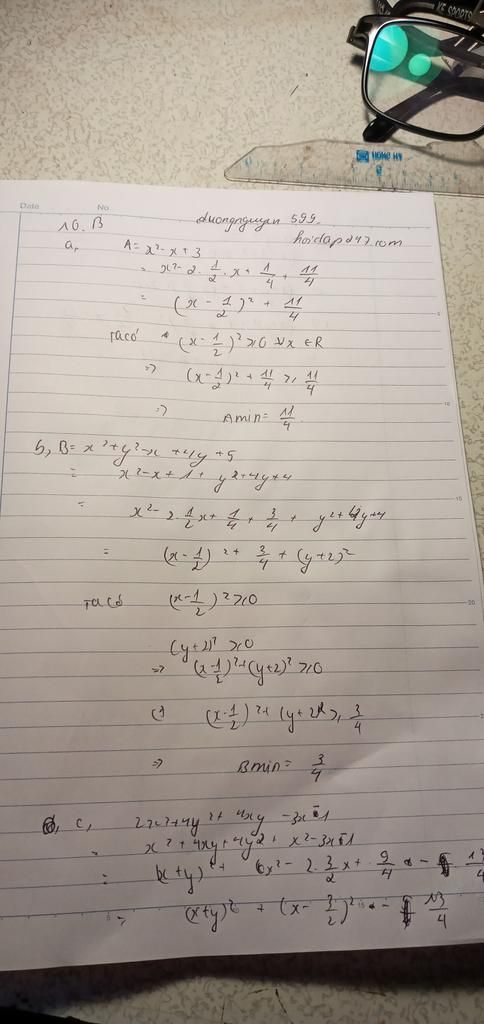 KE SPORTS
HONG HA
Date No
duongnguyen 599.
10. B
hoidap247.com
a, A = x² - x + 3
= x² - 2. 1/2 . x + 1/4 + 11/4
= (x - 1/2)² + 11/4
Ta có (x - 1/2)² ≥ 0 ∀x ∈ R
=> (x - 1/2)² + 11/4 ≥ 11/4
=> Amin = 11/4
b, B = x² + y² - x + 4y + 5
= x² - x + 1 + y² + 4y + 4
= x² - 2. 1/2 x + 1/4 + 3/4 + y² + 4y + 4
= (x - 1/2)² + 3/4 + (y + 2)²
Ta có (x - 1/2)² ≥ 0
(y + 2)² ≥ 0
=> (x - 1/2)² + (y + 2)² ≥ 0
(x - 1/2)² + (y + 2)² ≥ 3/4
=> Bmin = 3/4
c, 2x² + 4y² + 4xy - 3x - 1
= x² + 4xy + 4y² + x² - 3x - 1
= (x + y)² + x² - 2. 3/2 x + 9/4 - 13/4
= (x + y)² + (x - 3/2)² - 13/4